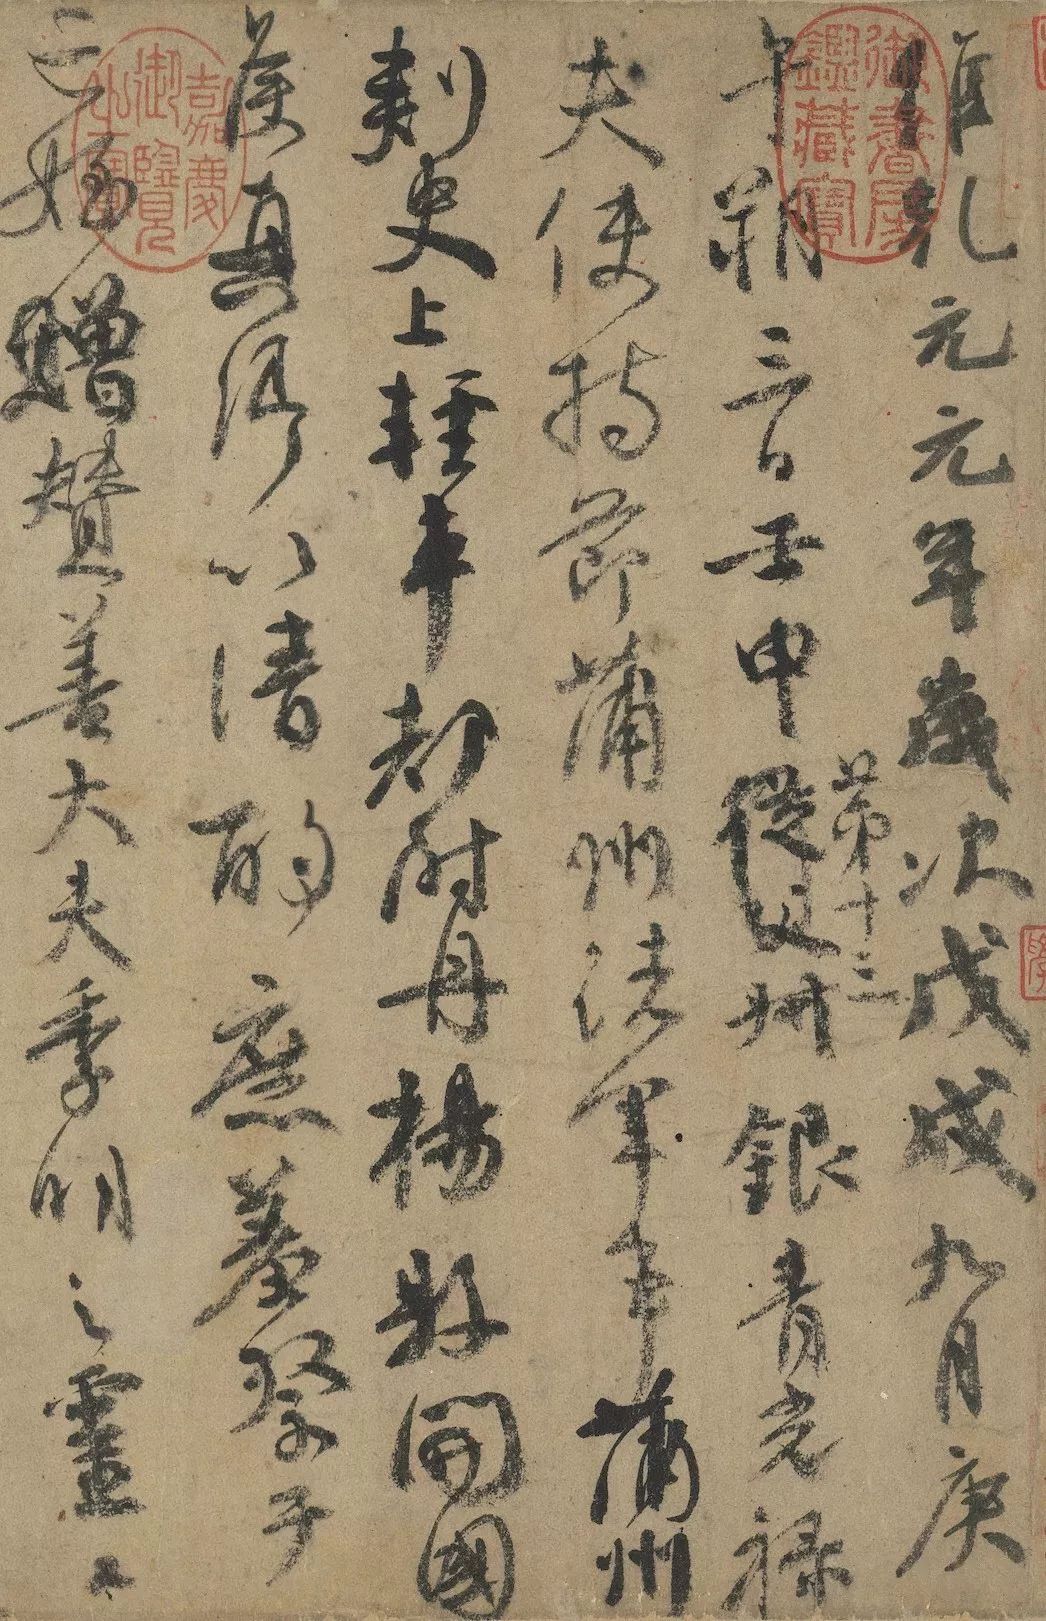 維乾元元年歲次戊戌九月庚
午朔三日壬申第十三從父銀青光祿
夫使持節蒲州諸軍事蒲州
刺史上輕車都尉丹楊縣開國
侯真卿以清酌庶羞祭于
亡姪贈贊善大夫季明之靈
御書房鑑藏寶
嘉慶御覽之寶